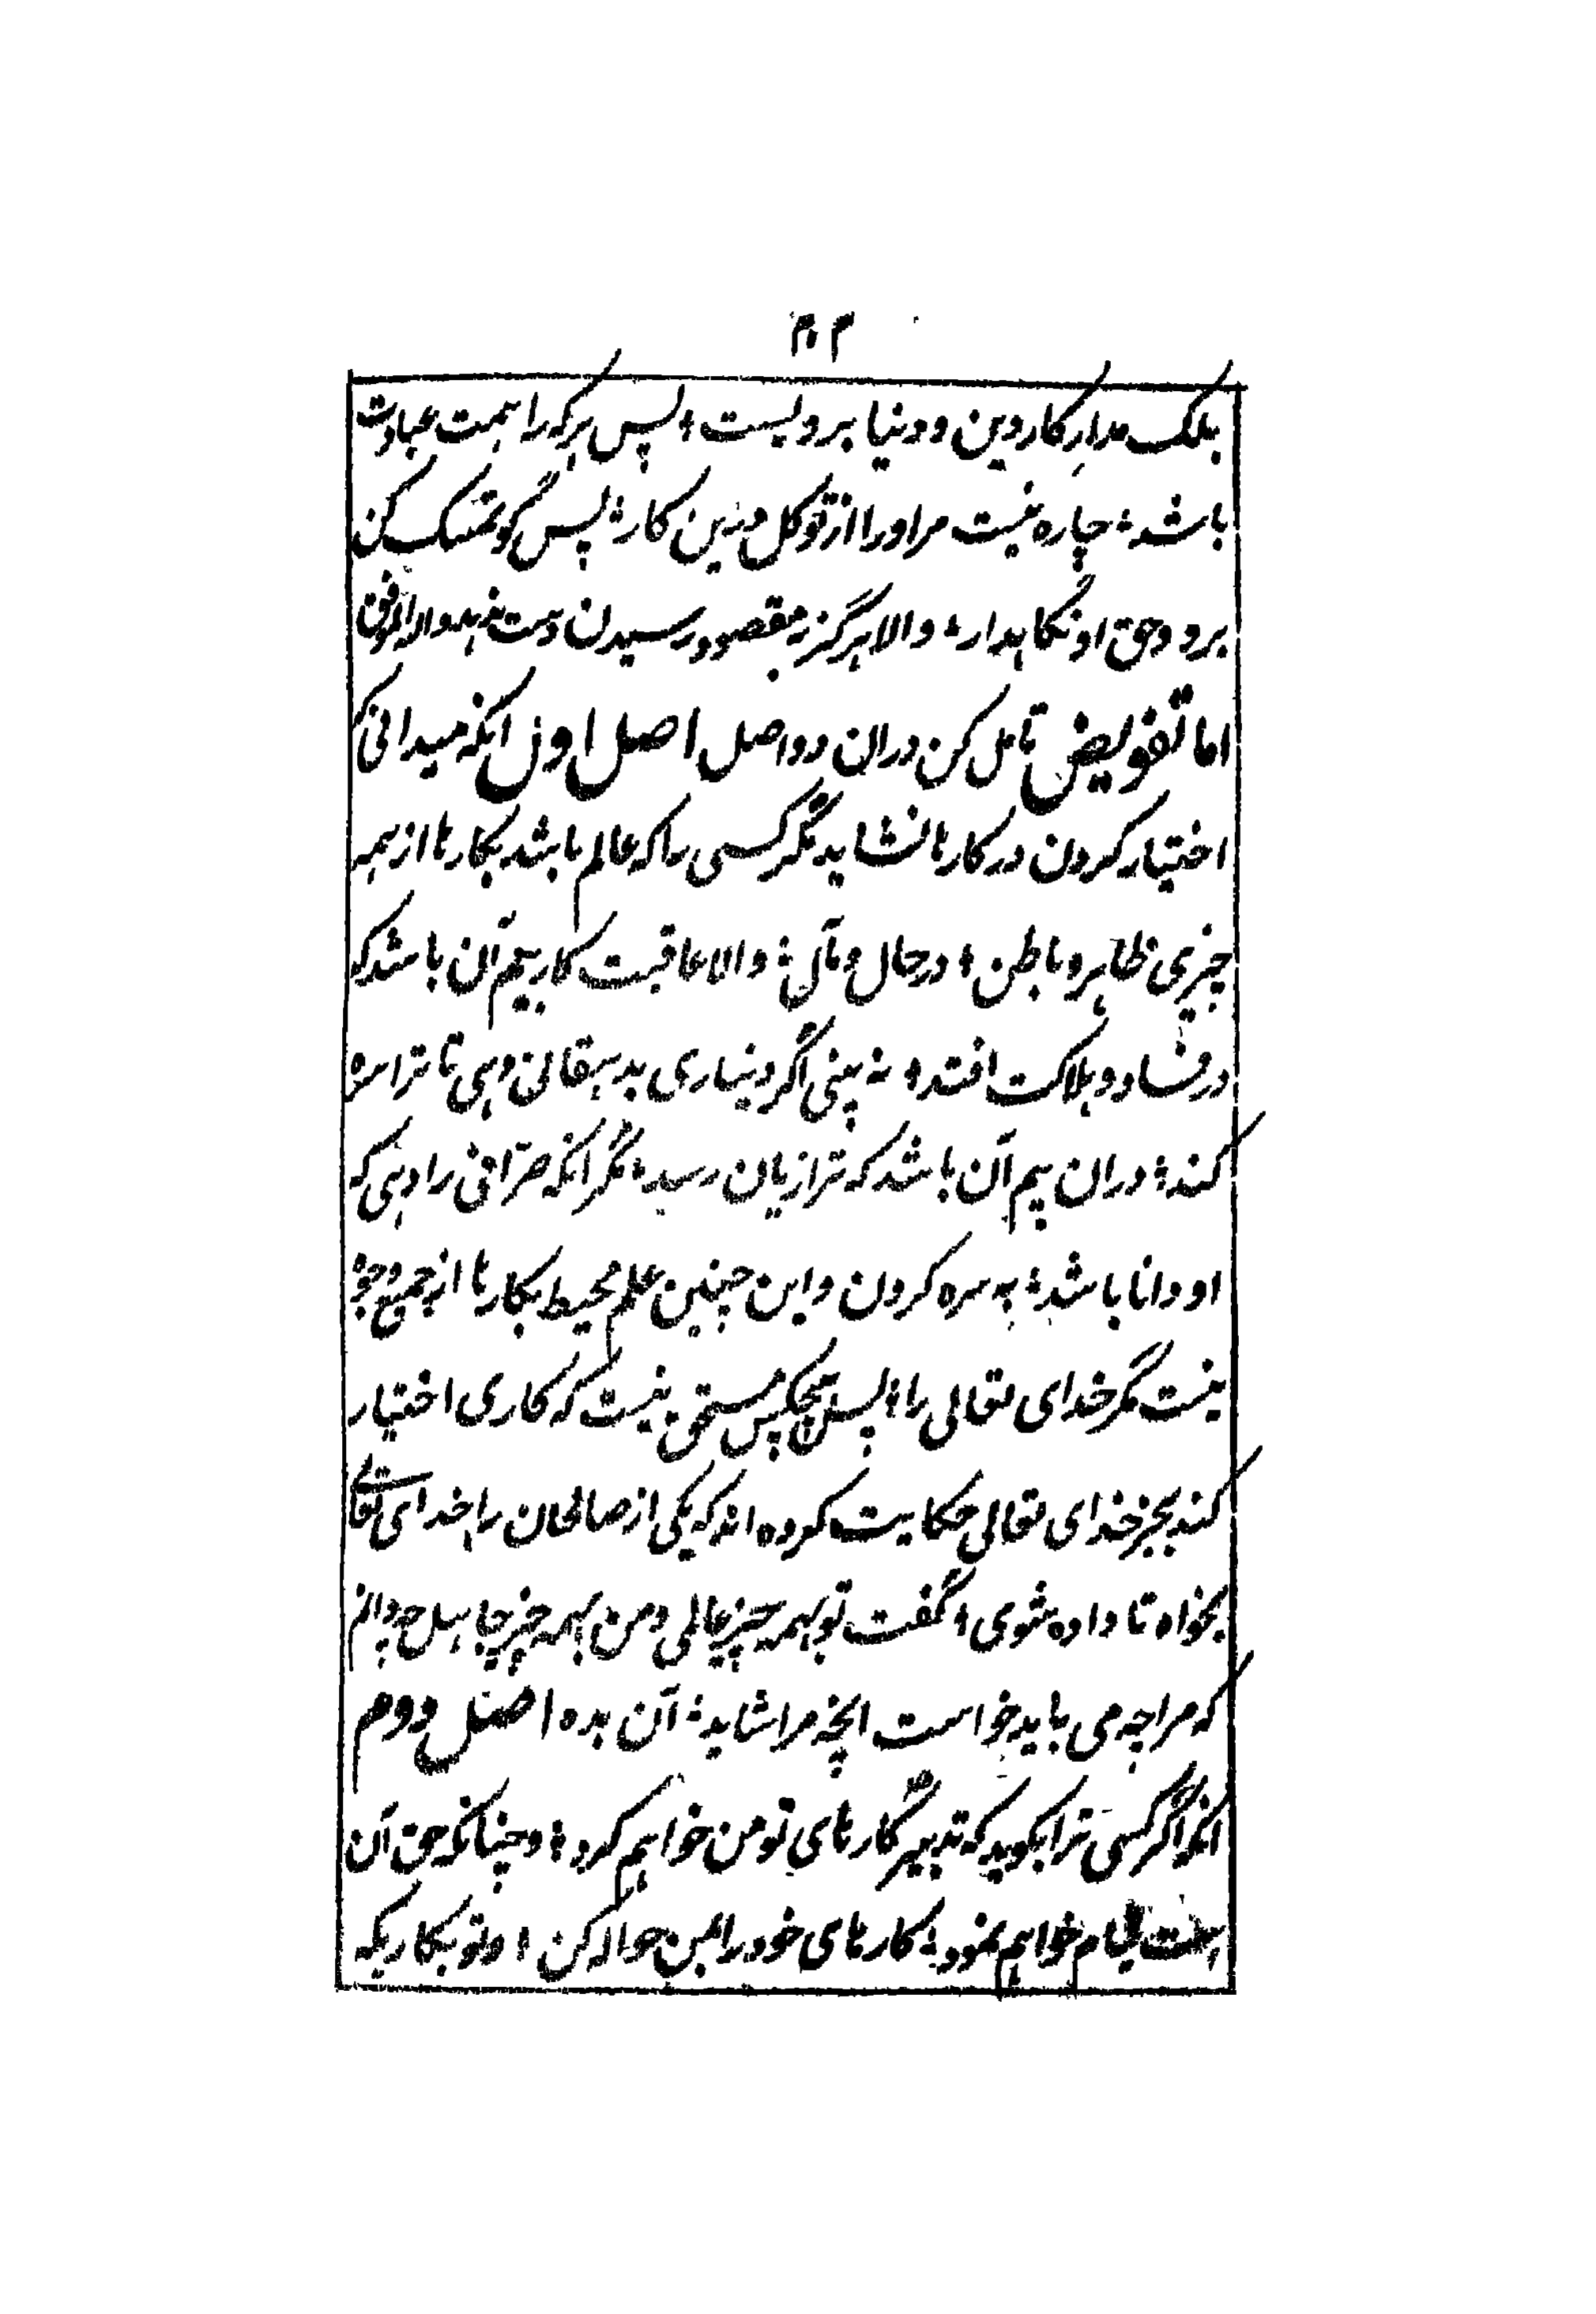 بلک مدارِ کار دین و دنیا برویست ؛ پس هرکه را همت عبادت
باشد ؛ چاره نیست مر او را از توکل درین کار ؛ پس گو تمسک کن
برو و حق او نگاهدار ؛ والا هرگز بمقصود رسیدن دست ندهد والله الموفق
اما تفویض تامل کن دران دو اصل اصل اول انکه میدانی که
اختیار کردن در کارها نشاید مگر کسی را که عالم باشد بکارها از همه
چیزی ظاهر و باطن ؛ در حال و مآل ؛ والا عاقبت کار بیم آن باشد که
در فساد و هلاکت افتد ؛ نه بینی اگر دیناری بدهقانی دهی تا ترا سره
کند ؛ دران بیم آن باشد که ترا زیان رسد ؛ مگر انکه صرّافی را دهی که
او دانا باشد ؛ به سره کردن و این چنین علم محیط بکارها از جمیع وجوه
نیست مگر خدای تعالی را ؛ پس هیچکس مستحق نیست که کاری اختیار
کند بجز خدای تعالی حکایت کرده اند که یکی از صالحان را خدای تعالی
بخواه تا داده شوی ؛ گفت تو بهمه چیز عالمی و من بهمه چیز جاهل چه دانم
که مرا چه می باید خواست انچه مرا شاید ؛ آن بده اصل دوم
انکه اگر کسی ترا بگوید که تدبیر کارهای تو من خواهم کرد ؛ و چنانکه حق آن
است قیام خواهم نمود ؛ کارهای خود را بمن حواله کن ؛ و تو بکاریکه